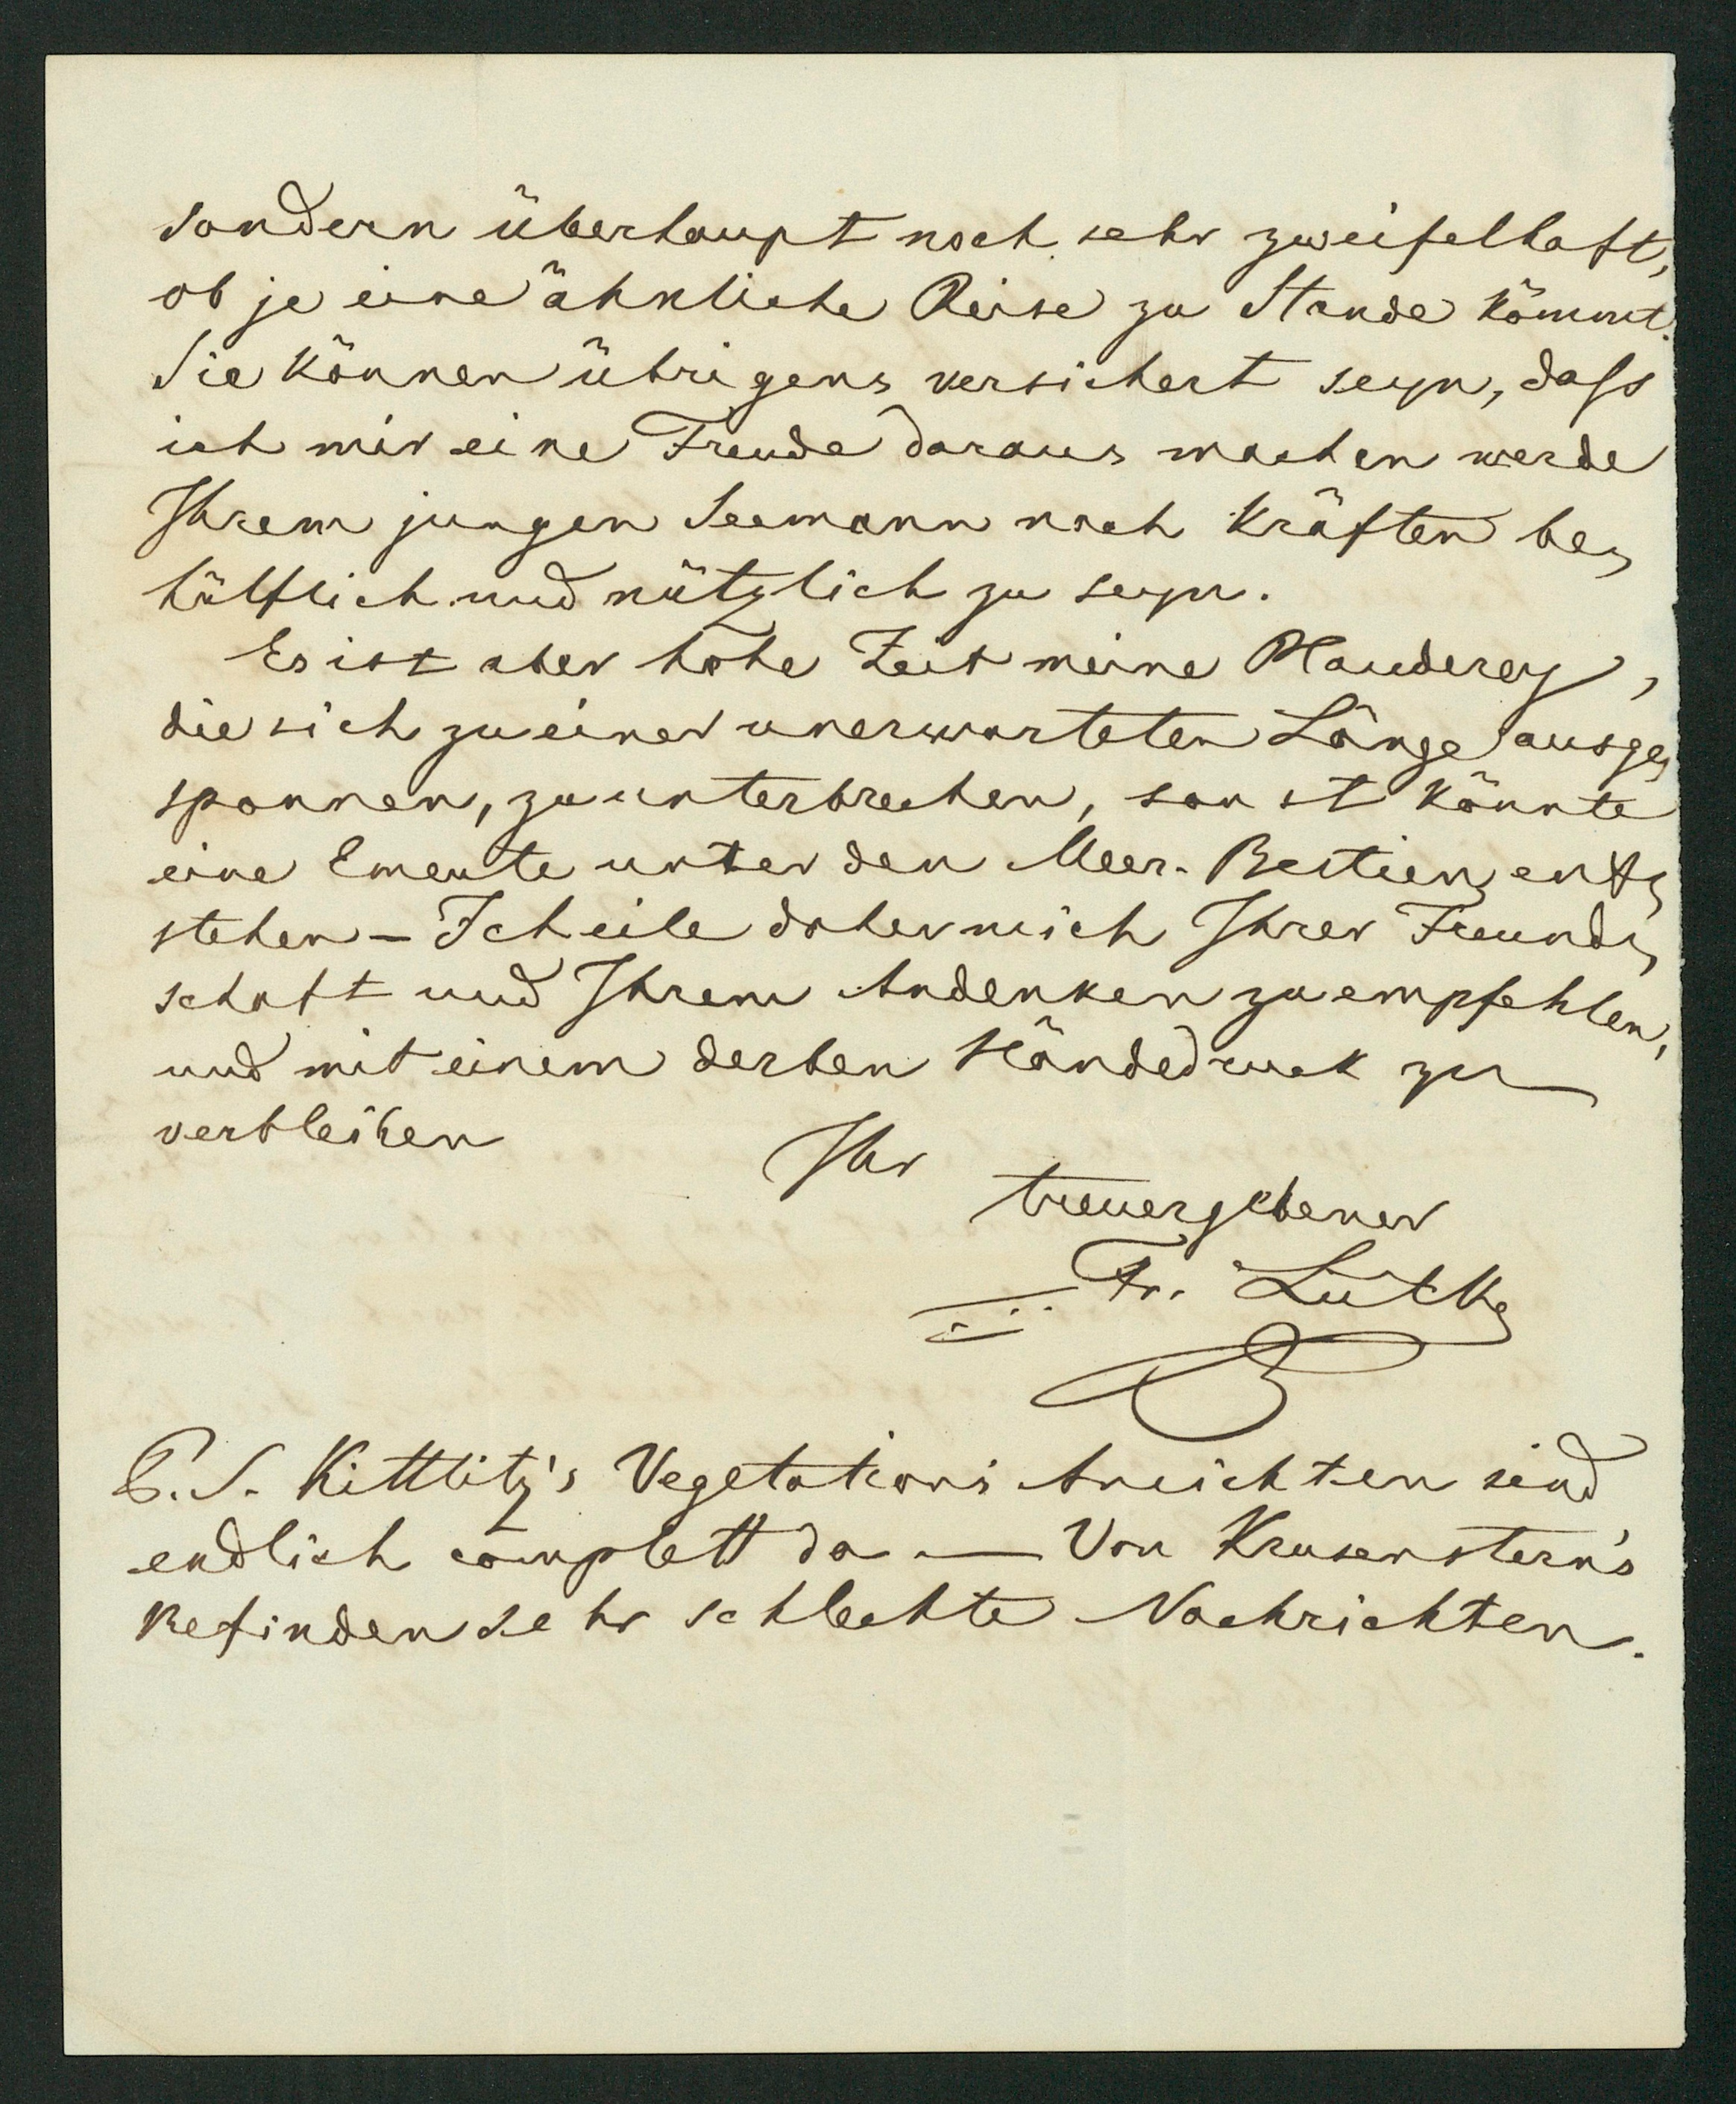 sondern überhaupt noch sehr zweifelhaft,
ob je eine ähnliche Reise zu Stande kömmt.
Sie können übrigens versichert seyn, daſs
ich mir eine Freude daraus machen werde
Ihrem jungen Seemann nach Kräften be-
hülflich und nützlich zu seyn.
Es ist aber hohe Zeit meine Plauderey,
die sich zu einer unerwarteten Länge ausge-
sponnen, zu unterbrechen, sonst könnte
eine Emeute unter den Meer-Bestien ent-
stehen – Ich eile daher mich Ihrer Freund-
schaft und Ihrem Andenken zu empfehlen,
und mit einem derben Händedruck zu
verbleiben
Ihr
treuergebener
Fr. Lütke
P.S. Kittlitz's Vegetations Ansichten sind
endlich complett da — Von Krusenstern's
Befinden sehr schlechte Nachrichten.